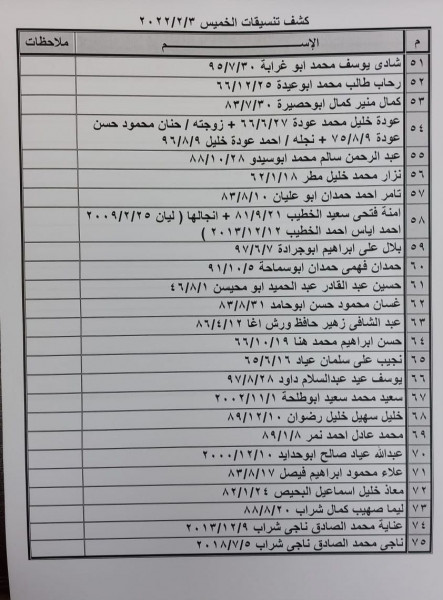 كشف تنسيقات الخميس ٢٠٢٢/٢/٣
م الإســـــــم ملاحظات
٥١ شادى يوسف محمد ابو غرابة ٩٥/٧/٣٠
٥٢ رحاب طالب محمد ابوعيدة ٦٦/١٢/٢٥
٥٣ كمال منير كمال ابوحصيرة ٨٣/٧/٣٠
٥٤ عودة خليل محمد عودة ٦٦/٦/٢٧ + زوجته / حنان محمود حسن
عودة ٧٥/٨/٩ + نجله / احمد عودة خليل ٩٦/٨/٩
٥٥ عبد الرحمن سالم محمد ابوسيدو ٨٨/١٠/٢٨
٥٦ نزار محمد خليل مطر ٦٢/١/١٨
٥٧ تامر احمد حمدان ابو عليان ٨٣/٨/١٠
٥٨ امنة فتحى سعيد الخطيب ٨١/٩/٢١ + انجالها ( ليان ٢٠٠٩/٢/٢٥
احمد اياس احمد الخطيب ٢٠١٣/١٢/١٢ )
٥٩ بلال على ابراهيم ابوجرادة ٩٧/٦/٧
٦٠ حمدان فهمى حمدان ابوسماحة ٩١/١٠/٥
٦١ حسين عبد القادر عبد الحميد أبو محيسن ٤٦/٨/١
٦٢ غسان محمود حسن ابوحامد ٨٣/٨/٣١
٦٣ عبد الشافى زهير حافظ ورش اغا ٨٦/٤/١٢
٦٤ حسن ابراهيم محمد هنا ٦٦/١٠/١٩
٦٥ نجيب على سلمان عياد ٦٥/٦/١٦
٦٦ يوسف عيد عبدالسلام داود ٩٧/٨/٢٨
٦٧ سعيد محمد سعيد ابوطلحة ٢٠٠٢/١١/١
٦٨ خليل سهيل خليل رضوان ٨٩/١٢/١٠
٦٩ محمد عادل احمد نمر ٨٩/١/٨
٧٠ عبدالله عياد صالح ابوحدايد ٢٠٠٠/١٢/١٠
٧١ علاء محمود ابراهيم فيصل ٨٣/٨/١٧
٧٢ معاذ خليل اسماعيل البحيص ٨٢/١/٢٤
٧٣ ليما صهيب كمال شراب ٨٨/٨/٢٠
٧٤ عناية محمد الصادق ناجى شراب ٢٠١٣/١٢/٩
٧٥ ناجى محمد الصادق ناجى شراب ٢٠١٨/٧/٥